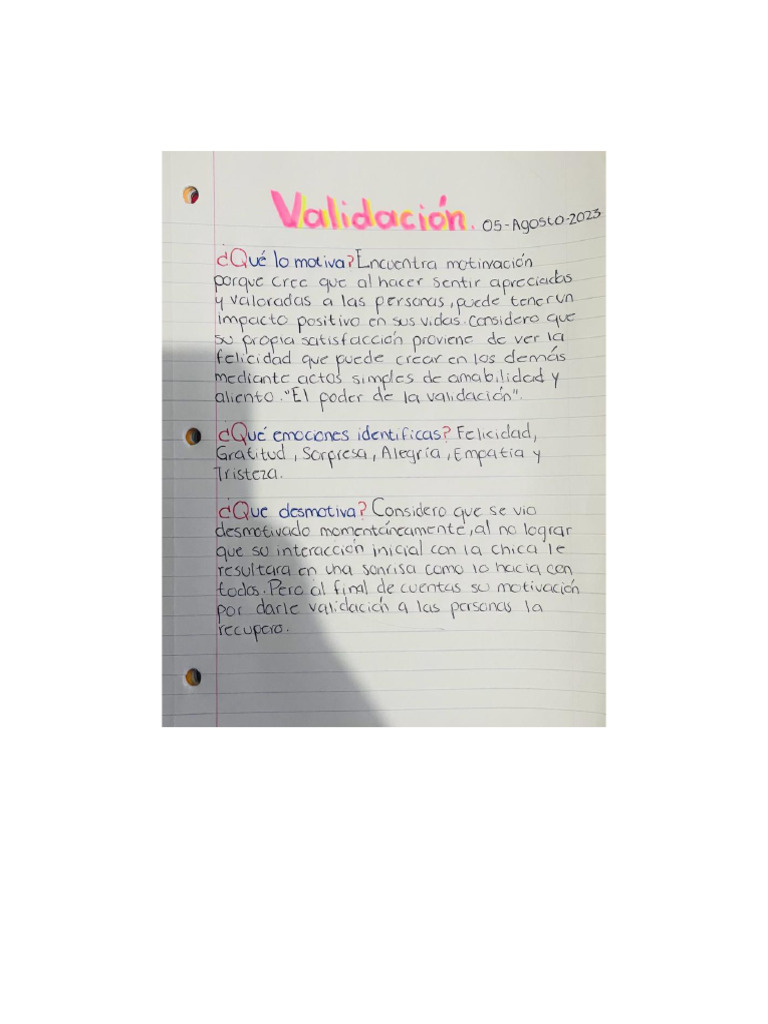 Validación. 05-Agosto-2023
¿Qué lo motiva? Encuentra motivación
porque cree que al hacer sentir apreciadas
y valoradas a las personas, puede tener un
impacto positivo en sus vidas. Considero que
su propia satisfacción proviene de ver la
felicidad que puede crear en los demás
mediante actos simples de amabilidad y
aliento. "El poder de la validación".
¿Qué emociones identificas? Felicidad,
Gratitud, Sorpresa, Alegría, Empatia y
Tristeza.
¿Que desmotiva? Considero que se vio
desmotivado momentáneamente, al no lograr
que su interacción inicial con la chica le
resultara en una sonrisa como lo hacía con
todos. Pero al final de cuentas su motivación
por darle validación a las personas la
recupero.